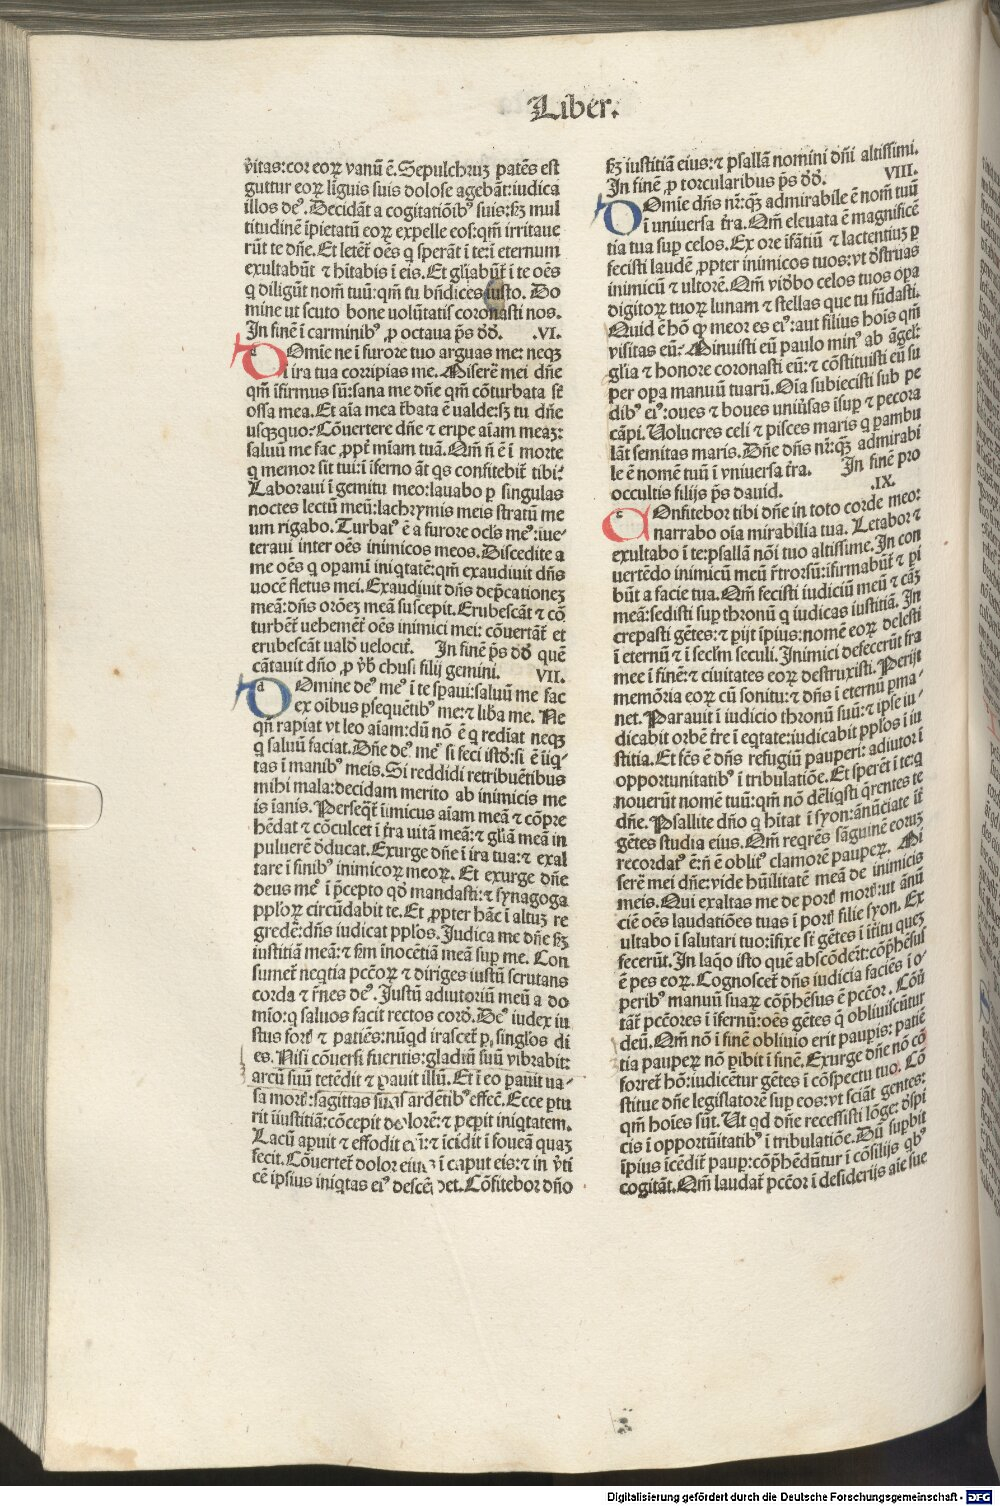 Liber.
v̄itas:cor eoꝝ vanū ē. Sepulchruꝫ patēs est
guttur eoꝝ līguis suis dolose agebāt:iudica
illos deꝰ. Decidāt a cogitatiōibꝰ suis:ſꝫ mul
titudinē īpietatū eoꝝ expelle eos:qm̄ irritaue
rūt te dn̄e. Et letēt̄ oēs q sperāt ī te:ī eternum
exultabūt ⁊ h̄itabis ī eis. Et gl̄iabūt̄ ī te oēs
q diligūt nom̄ tuū:qm̄ tu bn̄dices iusto. Do
mine ut scuto bone uolūtatis coronasti nos.
In finē ī carminibꝰ ꝓ octaua ps̄ dd̄. .VI.
dOmīe ne ī furore tuo arguas me: neqꝫ
ī ira tua corripias me. Miserē mei dn̄e
qm̄ īfirmus sū:sana me dn̄e qm̄ cōturbata st̄
ossa mea. Et aīa mea t̄bata ē ualde:sꝫ tu dn̄e
usqꝫquo: Cōuertere dn̄e ⁊ eripe aīam meaꝫ:
saluū me fac ꝓpt̄ mīam tuā. Qm̄ n̄ ē ī morte
q memor sit tui:ī īferno āt qs confitebit̄ tibi:
Laboraui ī gemitu meo:lauabo ꝑ singulas
noctes lectū meū:lachrymis meis stratū me
um rigabo. Turbatꝰ ē a furore ocl̄s meꝰ:iue-
teraui inter oēs inimicos meos. Discedite a
me oēs q oꝑamī iniqtatē:qm̄ exaudiuit dn̄s
uocē fletus mei. Exaudiuit dn̄s dep̄cationeꝫ
meā:dn̄s orōeꝫ meā suscepit. Erubescāt ⁊ cō
turbēt̄ uehemēt̄ oēs inimici mei: cōuertāt̄ et
erubescāt uald̄ velocit̄. In finē ps̄ dd̄ quē
cātauit dn̄o ꝓ v̄b̄ chusi filij gemini. VII.
dOmine deꝰ meꝰ ī te sꝑaui:saluū me fac
ex oībus ꝑsequētibꝰ me:⁊ lib̄a me. Ne
qn̄ rapiat vt leo aīam:dū nō ē q rediat neqꝫ
q saluū faciat. Dn̄e deꝰ meꝰ si feci istd̄:si ē īiq-
tas ī manibꝰ meis. Si reddidi retribuētibus
mihi mala:decidam merito ab inimicis me
is īanis. Perseqt̄ īimicus aīam meā ⁊ cōpre
hēdat ⁊ cōculcet ī t̄ra uitā meā:⁊ gl̄iā meā in
puluerē d̄ducat. Exurge dn̄e ī ira tua:⁊ exal
tare ī finibꝰ inimicoꝝ meoꝝ. Et exurge dn̄e
deus meꝰ ī p̄cepto qd̄ mandasti:⁊ synagoga
ppl̄oꝝ circūdabit te. Et ꝓpter hāc ī altuꝫ re
gredē:dn̄s iudicat ppl̄os. Judica me dn̄e ſꝫ
iustitiā meā:⁊ ſm̄ īnocētiā meā suꝑ me. Con
sumet̄ neqtia pccōꝝ ⁊ diriges iustū scrutans
corda ⁊ r̄nes deꝰ. Justū adiutoriū meū a do
mīo:q saluos facit rectos cord̄. Deꝰ iudex iu
stus fort̄ ⁊ patiēs:nūqd irascet̄ ꝑ singlos di
es. Nisi cōuersi fueritis:gladiū suū vibrabit:
arcū suū tetēdit ⁊ ꝑauit illū. Et ī eo ꝑauit ua-
sa mort̄:sagittas suas ardētibꝰ effec̄. Ecce ꝑtu
rit īiustitiā:cōcepit dolorē:⁊ peꝑit iniqtatem.
Lacū aꝑuit ⁊ effodit eū:⁊ īcidit ī foueā quaꝫ
fecit. Cōuertet̄ dolor eius ī caput eis:⁊ in v̄ti
cē ipsius iniqtas eiꝰ descēdet. Cōfitebor dn̄o
ſꝫ iustitiā eius:⁊ psallā nomini dn̄i altissimi.
In finē ꝓ torcularibus ps̄ dd̄. VIII.
dOmīe dn̄s nr̄:qꝫ admirabile ē nom̄ tuū
ī uniuersa t̄ra. Qm̄ eleuata ē magnificē
tia tua suꝑ celos. Ex ore īfātiū ⁊ lactentiuꝫ ꝑ
fecisti laudē ꝓpter inimicos tuos:vt d̄struas
inimicū ⁊ ultorē. Qm̄ vid̄bo celos tuos oꝑa
digitoꝝ tuoꝝ lunam ⁊ stellas que tu fūdasti.
Quid ē hō q meor es eiꝰ:aut filius hoīs qm̄
visitas eū: Minuisti eū paulo minꝰ ab āgel:
gl̄ia ⁊ honore coronasti eū:⁊ cōstituisti eū su
per oꝑa manuū tuarū. Oīa subiecisti sub pe
dibꝰ eiꝰ:oues ⁊ boues uniūsas īsuꝑ ⁊ pecora
cāpi. Uolucres celi ⁊ pisces maris q ꝑambu
lāt semitas maris. Dn̄e dn̄s nr̄:qꝫ admirabi
le ē nomē tuū ī vniuersa t̄ra. In finē pro
occultis filijs ps̄ dauid. .IX.
cOnfitebor tibi dn̄e in toto corde meo:
narrabo oīa mirabilia tua. Letabor ⁊
exultabo ī te:psallā nōī tuo altissime. In con
uertēdo inimicū meū r̄trorsū:īfirmabūt̄ ⁊ ꝑi
būt a facie tua. Qm̄ fecisti iudiciū meū ⁊ cāꝫ
meā:sedisti suꝑ thronū q iudicas iustitiā. In
crepasti gētes:⁊ ꝑijt īpius:nomē eoꝝ delesti
ī eternū ⁊ ī secl̄m seculi. Inimici defecerūt fra
mee ī finē:⁊ ciuitates eoꝝ destruxisti. Perijt
memōria eoꝝ cū sonitu:⁊ dn̄s ī eternū ꝑma-
net. Parauit ī iudicio thronū suū:⁊ ipse iu-
dicabit orbē t̄re ī eqtate:iudicabit ppl̄os ī iu
stitia. Et fc̄s ē dn̄s refugiū pauperi: adiutor ī
opportunitatibꝰ ī tribulatiōe. Et sperēt ī te:q
nouerūt nomē tuū:qm̄ nō dēliqsti q̄rentes te
dn̄e. Psallite dn̄o q h̄itat ī syon:ānūciate īt̄
gētes studia eius. Qm̄ reqrēs sāguinē eoruꝫ
recordatꝰ ē:n̄ ē oblitꝰ clamorē pauꝑꝝ. Mi
serē mei dn̄e:vide hūilitatē meā de inimicis
meis. Qui exaltas me de port̄ mort̄:ut ānū
ciē oēs laudatiōes tuas ī port̄ filie syon. Ex
ultabo ī salutari tuo:īfixe st̄ gētes ī īt̄itu queꝫ
fecerūt. In laq̄o isto quē abscōdert̄:cōp̄hēsus
ē pes eoꝝ. Cognoscet̄ dn̄s iudicia faciēs ī o-
peribꝰ manuū suaꝝ cōp̄hēsus ē pccōr. Cōū
tāt̄ pccōres ī īfernū:oēs gētes q̄ obliuiscūtur
deū. Qm̄ nō ī finē obliuio erit pauꝑis: patiē
tia pauꝑꝝ nō ꝑibit ī finē. Exurge dn̄e nō cō
forret̄ hō:iudicētur gētes ī cōspectu tuo. Cō
stitue dn̄e legislatorē suꝑ eos:vt sciāt gentes:
qm̄ hoīes sūt. Ut qd dn̄e recessisti lōge: d̄spi
cis ī opportūitatibꝰ ī tribulatiōe. Dū suꝑbit
īpius īcēdit̄ pauꝑ:cōp̄hēdūtur ī cōsilijs qbꝰ
cogitāt. Qm̄ laudat̄ pccōr ī desiderijs aīe sue
Digitalisierung gefördert durch die Deutsche Forschungsgemeinschaft - DFG